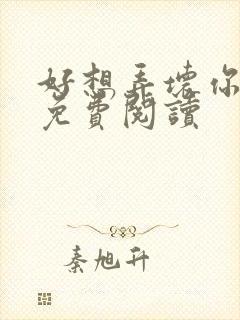 好想弄坏你
免費閱讀
秦旭升